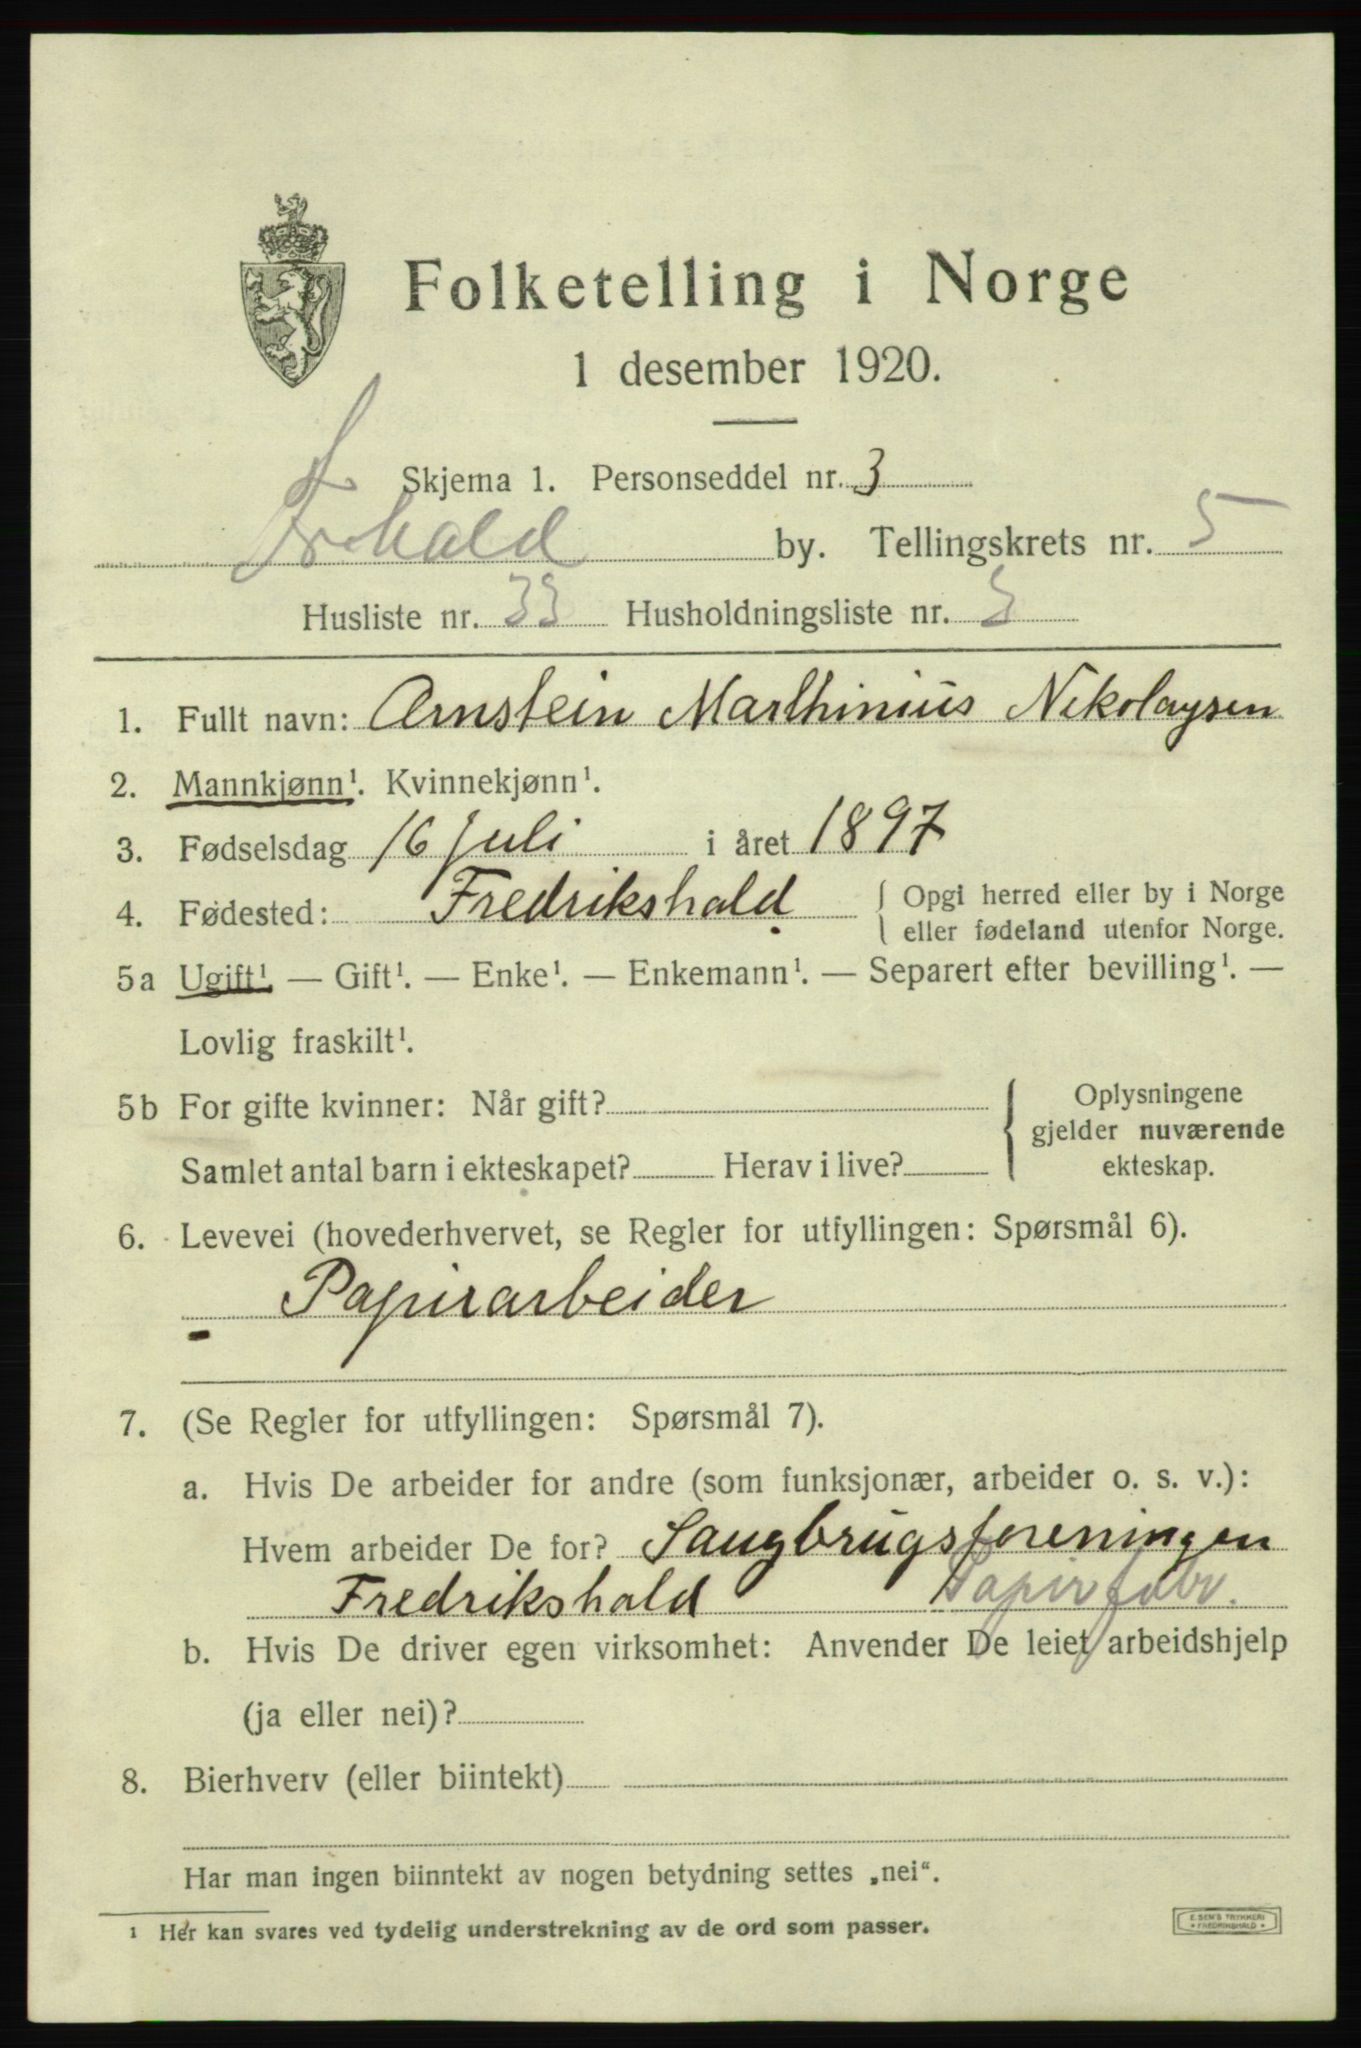 Folketelling i Norge
1 desember 1920.
Skjema 1. Personseddel nr. 3
Frhald by. Tellingskrets nr. 5
Husliste nr. 33 Husholdningsliste nr.
1. Fullt navn: Arnstein Marthinius Nikolaysen
2. Mannkjønn¹. Kvinnekjønn¹.
3. Fødselsdag 16 juli i året 1897
4. Fødested: Fredrikshald { Opgi herred eller by i Norge
eller fødeland utenfor Norge.
5a Ugift¹. — Gift¹. — Enke¹. — Enkemann¹. — Separert efter bevilling¹. —
Lovlig fraskilt¹.
5b For gifte kvinner: Når gift? { Oplysningene
gjelder nuværende
Samlet antal barn i ekteskapet? Herav i live? ekteskap.
6. Levevei (hovederhvervet, se Regler for utfyllingen: Spørsmål 6).
Papirarbeider
7. (Se Regler for utfyllingen: Spørsmål 7).
a. Hvis De arbeider for andre (som funksjonær, arbeider o. s. v.):
Hvem arbeider De for? Saugbrugsforeningen
Fredrikshald Papirfabr.
b. Hvis De driver egen virksomhet: Anvender De leiet arbeidshjelp
(ja eller nei)?
8. Bierhverv (eller biintekt)
Har man ingen biinntekt av nogen betydning settes „nei“.
¹ Her kan svares ved tydelig understrekning av de ord som passer.
E. SEM'S TRYKKERI
* FREDRIKSHALD *